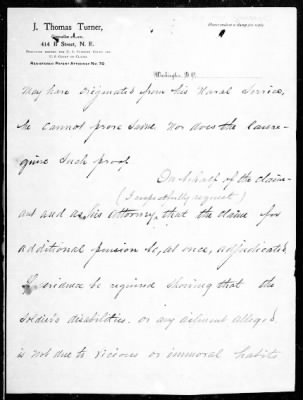 J. Thomas Turner,
Counsellor at Law,
414 B Street, N. E.
U. S. Court of Claims.
Registered Patent Attorney No. 76
Please enclose a stamp for reply.
Washington, D. C.
may have originated from his Naval Service,
he cannot prove same. Nor does the law re-
quire such proof.
On behalf of the claim-
(I respectfully request)
ant and as his attorney, that the claim for
additional pension be, at once, adjudicated.
If evidence be required showing that the
soldier's disabilities, or any ailment alleged,
is not due to vicious or immoral habits